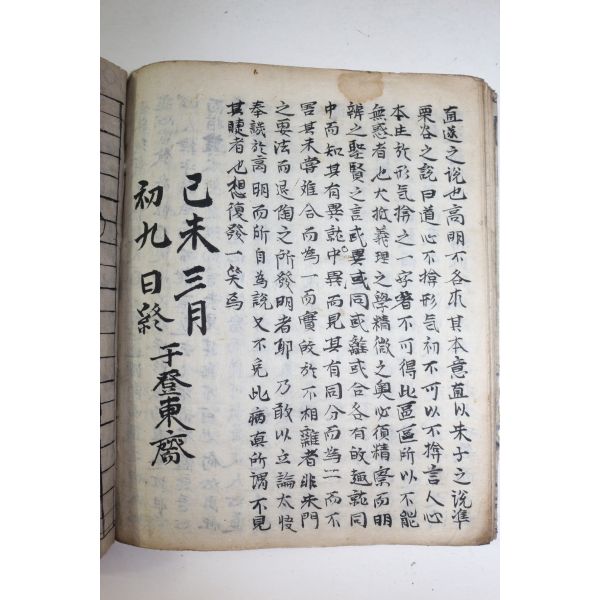 直遂之說也高明不各求其本意直以朱子之說準
栗谷之說曰道心不揜形気初不可以不揜言人心
本生於形气揜之一字著不可得此區區所以不能
無惑者也大抵義理之學精微之奧必須精察而明
辨之聖賢之言或異或同或離或合各有攸趣就同
中而知其有異就中異而見其有同分而為二而不
害其未嘗離合而為一而實攸於不相離者非朱門
之要法而退陶之所發明者耶乃敢以立論太快
奉誤於高明而所自為說又不免此病真所謂不見
其睫者也想復發一笑為
己未三月
初九日終
于登東齋